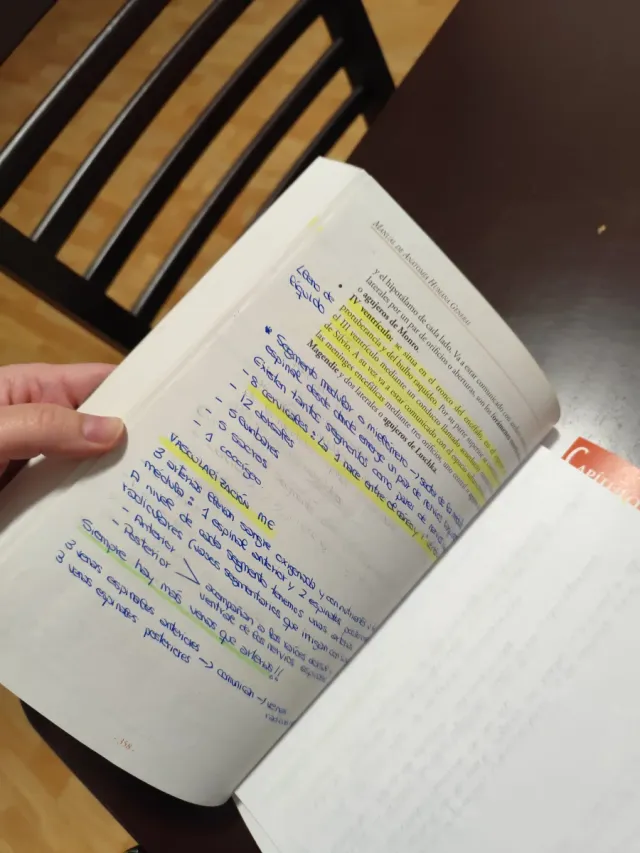 MANUAL DE ANATOMÍA HUMANA GENERAL
y el hipotálamo de cada lado. Va a estar comunicado con ambos
laterales por un par de orificios o aberturas, son los
o agujeros de Monro.
IV ventrículo: se sitúa en el tronco del encéfalo, en el
protuberancia y del bulbo raquídeo. Por su parte superior
el III ventrículo mediante un conducto llamado
de Silvio. A su vez va a estar comunicado con el espacio
las meninges encefálicas mediante tres orificios, uno central
Magendie y dos laterales o agujeros de Luschka.
Lleno de
líquido
* Segmento medular o mielómero → sector de la méd
espinal desde donde emerge un par de nervios
Existen tantos segmentos como pares de nervios
- 8 cervicales: la 1 nace entre
- 12 dorsales
- 5 lumbares
- 5 sacros
- 1 coccígeo
VASCULARIZACIÓN ME
3 arterias llevan sangre oxigenada y con nutrientes
médula: 1 espinal anterior y 2 espinales
A nivel de cada segmento tenemos unas arterias
radiculares (vasos segmentarios que irrigan con
- Anterior
- Posterior > acompañan a las raíces dorsal
ventral de los nervios
Siempre hay más venas que arterias!!
3 venas espinales anteriores
3 venas espinales posteriores → comunican → venas
- 158 -
CAPÍTULO